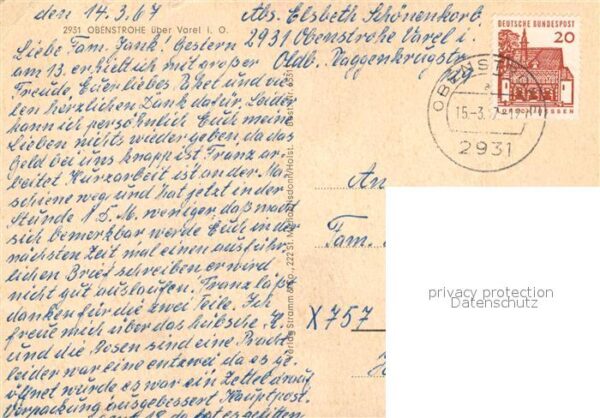 den 14. 3. 67
2931 OBENSTROHE über Varel i. O.
Liebe Fam. Jank! Gestern
am 13. erhielt ich mit großer
Freude Euer liebes Paket und vie-
len herzlichen Dank dafür. Leider
kann ich persönlich Euch meine
Lieben nichts wiedergeben da das
Geld bei uns knapp ist Franz ar-
beitet Kurzarbeit ist an der Ma-
schiene weg und hat jetzt in der
Stunde 1 D.M. weniger daß macht
sich bemerkbar werde Euch in der
nächsten Zeit mal einen ausführ-
lichen Brief schreiben er wird
nicht gut auslaufen. Franz läßt
danken für die zwei Teile. Ich
freue mich über das hübsche K.
und die Rosen sind eine Pracht
leider war eine entzwei da es ge-
öffnet wurde es war ein Zettel drauf
Verpackung ausgebessert Hauptpost.
da hat es gelitten
Abs. Elsbeth Schönenkorb
2931 Obenstrohe Varel i.
Oldb.
DEUTSCHE BUNDESPOST
20
OBENSTROHE
a
15.-3.67-12
2931
An
Fam.
X757
privacy protection
Datenschutz